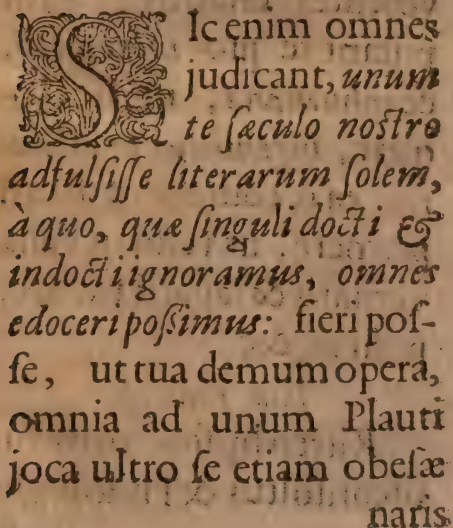 SIc enim omnes
judicant, unum
te ſæculo noſtro
adfulſiſſe literarum ſolem,
à quo, quæ ſinguli docti &
indocti ignoramus, omnes
edoceri poſſimus: fieri poſ-
ſe, ut tua demum operâ,
omnia ad unum Plauti
joca ultro ſe etiam obeſæ
naris